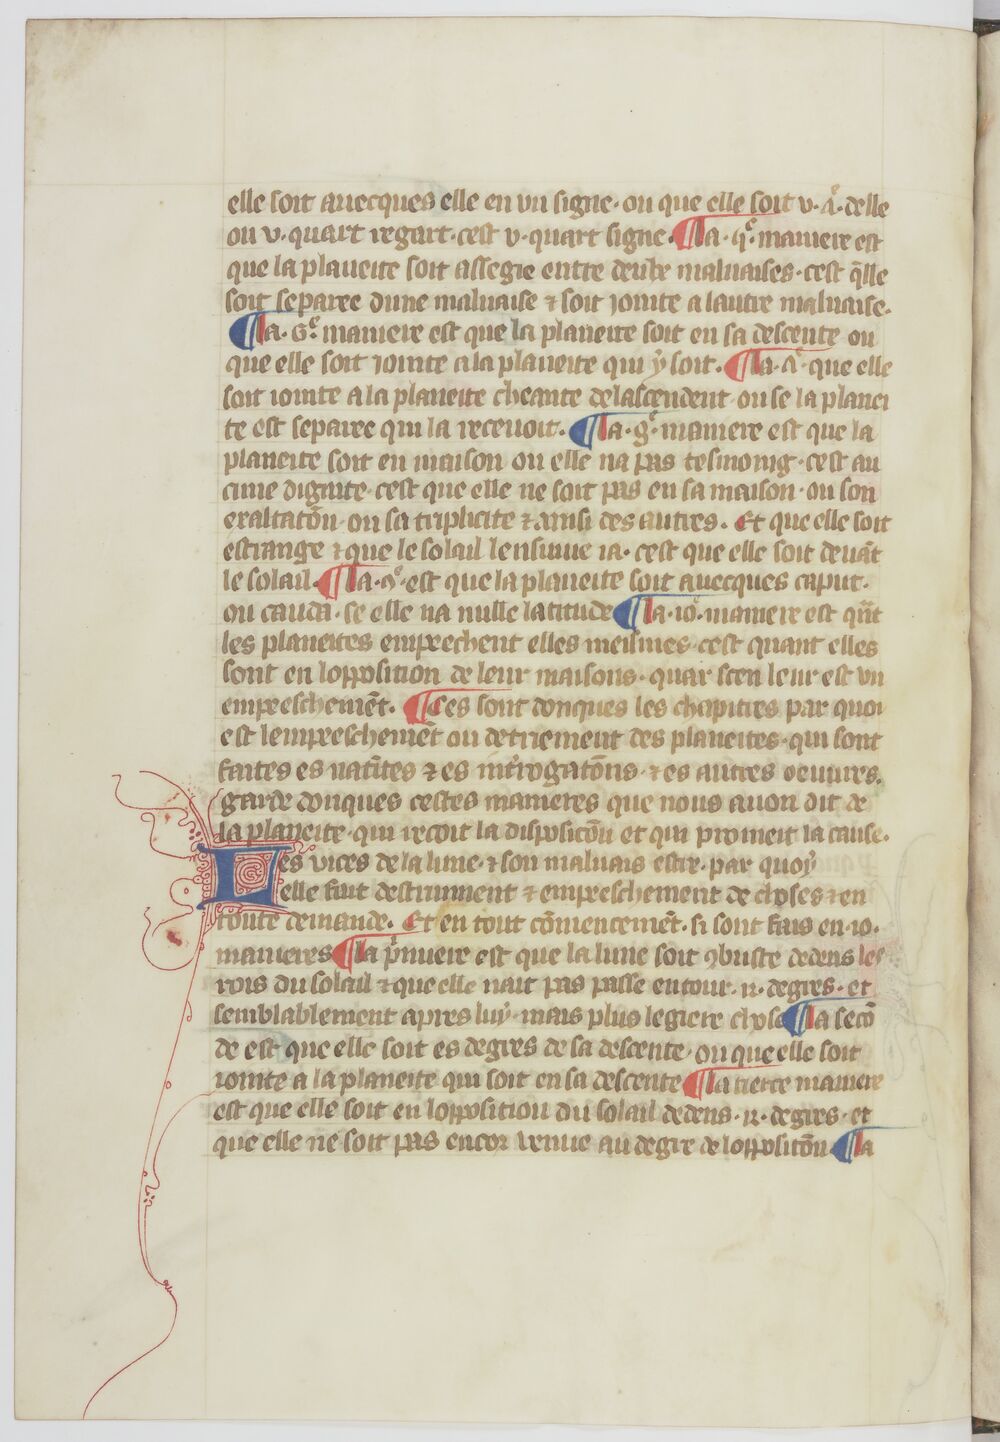 elle soit auecques elle en vn signe · ou que elle soit v · ꝯ · delle
ou v · quart regart · cest v · quart signe · ¶ la · q͛ · maniere est
que la planeite soit assegie entre deubz maluaises · cest q̄lle
soit separee dune maluaise ⁊ soit iointe a lautre maluaise ·
¶ la · 6͛ · maniere est que la planeite soit en sa descente ou
que elle soit iointe a la planeite qui y soit · ¶ la · ꝯ · que elle
soit iointe a la planeite cheante de lascendent · ou se la planei
te est separee qui la receuoit · ¶ la · 8͛ · maniere est que la
planeite soit en maison ou elle na pas tesmoing · cest au
cune dignite · cest que elle ne soit pas en sa maison · ou son
exaltatōn · ou sa triplicite ⁊ ainsi des autres · Et que elle soit
estrange ⁊ que le solail lensuiue ia · cest que elle soit deuāt
le solail · ¶ la · 9͛ · est que la planeite soit auecques caput ·
ou cauda · se elle na nulle latitude ¶ la · 10͛ · maniere est qn̄t
les planeites empeechent elles meismes · cest quant elles
sont en lopposition de leur maisons · quar scen leur est vn
empeeschemēt · ¶ Ces sont donques les chapitres par quoi
est lempeeschemēt ou detriement des planeites · qui sont
faites es natītes ⁊ es int̾rogatōns · ⁊ es autres oeuures ·
garde donques cestes manieres que nous auon dit de
la planeite · qui recoit la disposicōn et qui promeit la cause ·
Les vices de la lune · ⁊ son maluais estre · par quoy
elle fait destruiment ⁊ empeeschement de choses ⁊ en
toute demande · Et en tout cōmencemēt · si sont fais en · 10 ·
manieres ¶ la p̾miere est que la lune soit ꝯbuste dedens les
rois du solail ⁊ que elle nait pas passe entour · 12 · degres · et
semblablement apres luy · mais plus legiere chose ¶ la secō
de est que elle soit es degres de sa descente · ou que elle soit
iointe a la planeite qui soit en sa descente ¶ la tierce maniere
est que elle soit en lopposition du solail dedens · 12 · degres · et
que elle ne soit pas encor venue au degre de lopposicōn ¶ la